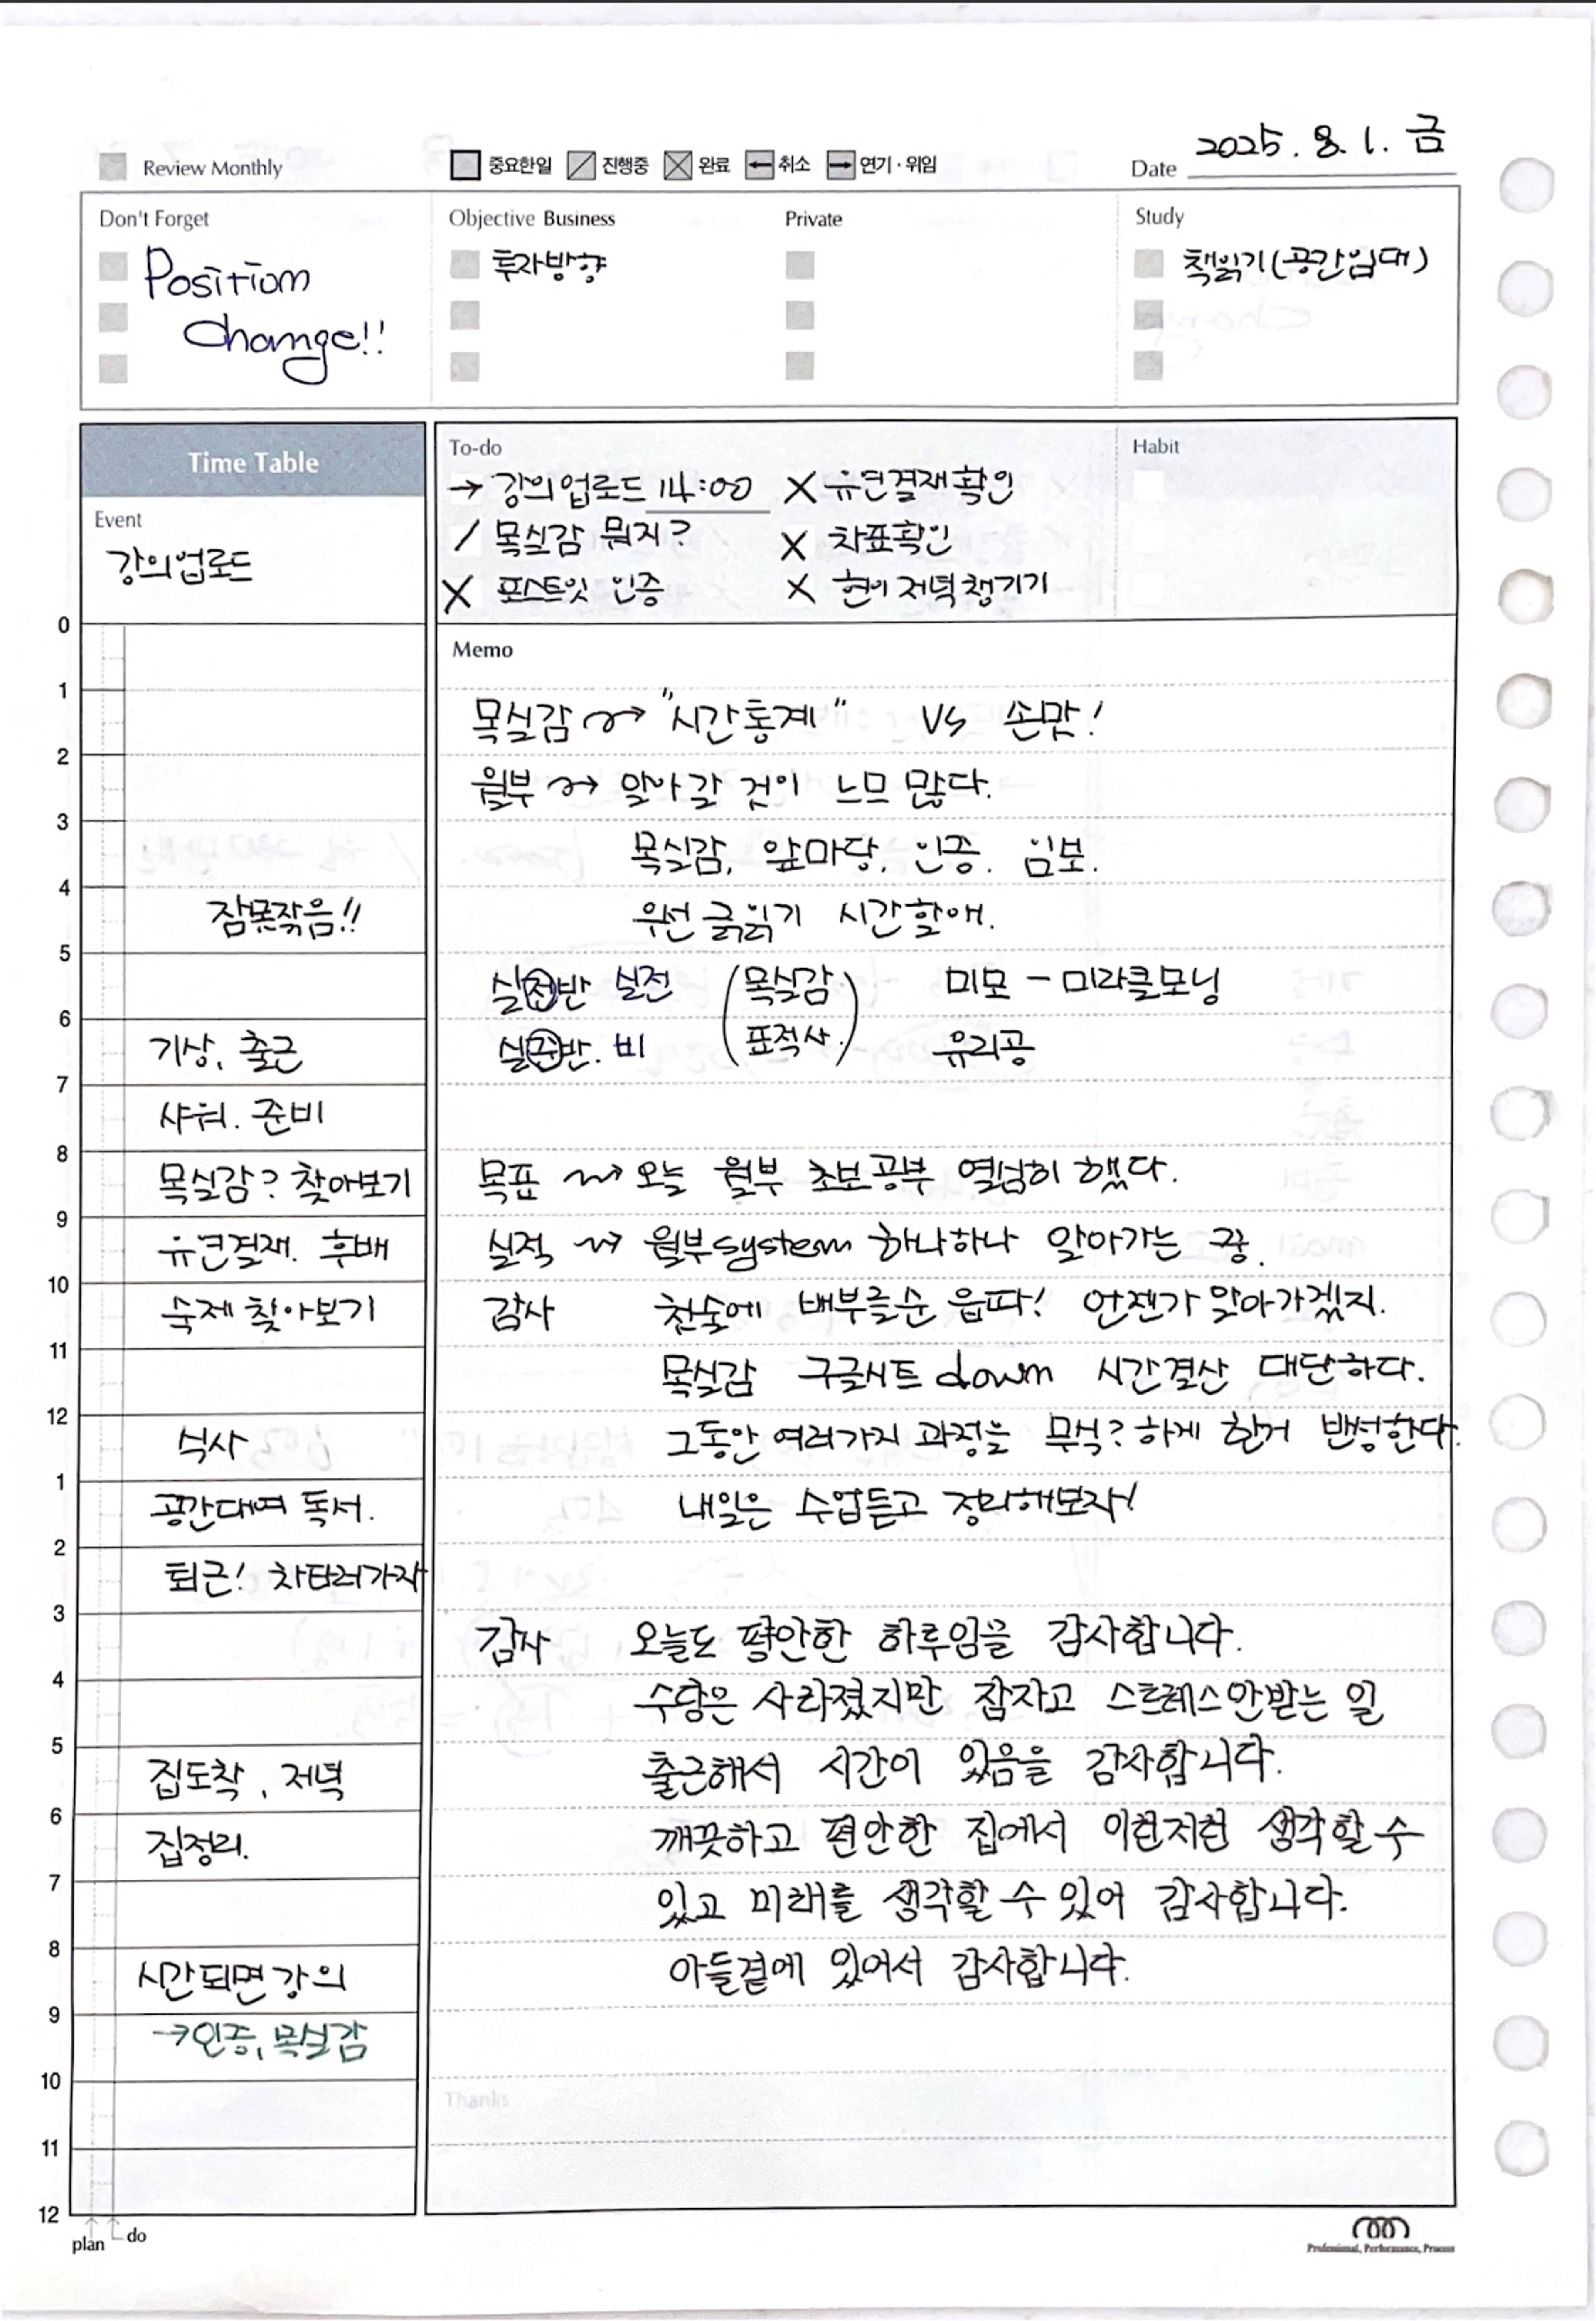 2025. 8. 1. 금
Review Monthly 중요한일 진행중 완료 취소 연기·위임 Date
Don't Forget
Position
Change!!
Objective Business
투자방향
Private
Study
책읽기(공간임대)
Time Table
Event
강의업로드
To-do
→ 강의업로드 14:00 X 유연결재확인
/ 목실감 뭐지? X 차표확인
X 포스트잇 인증 X 현이저녁챙기기
Habit
0
1
2
3
4
잠못잤음!!
5
6
기상, 출근
7
샤워. 준비
8
목실감? 찾아보기
9
유연결재. 후배
10
숙제 찾아보기
11
12
식사
1
공간대여 독서.
2
퇴근! 차타러가자
3
4
5
집도착, 저녁
6
집정리.
7
8
시간되면 강의
9
→인증, 목실감
10
11
12
plan do
Memo
목실감 → "시간통계" VS 손맛!
월부 → 알아갈 것이 느므 많다.
목실감, 앞마당, 인증. 임보.
우선 글읽기 시간할애.
실전반 실전 (목실감 미모 - 미라클모닝
실준반. 비 표적사.) 유리공
목표 → 오늘 월부 초보공부 열심히 했다.
실적 → 월부system 하나하나 알아가는 중.
감사 첫술에 배부를순 읍따! 언젠가 알아가겠지.
목실감 구글시트 down 시간결산 대단하다.
그동안 여러가지 과정을 무식?하게 한거 반성한다.
내일은 수업듣고 정리해보자!
감사 오늘도 평안한 하루임을 감사합니다.
수당은 사라졌지만 잠자고 스트레스안받는 일
출근해서 시간이 있음을 감사합니다.
깨끗하고 편안한 집에서 이런저런 생각할 수
있고 미래를 생각할 수 있어 감사합니다.
아들곁에 있어서 감사합니다.
Thanks
Professional, Performance, Process